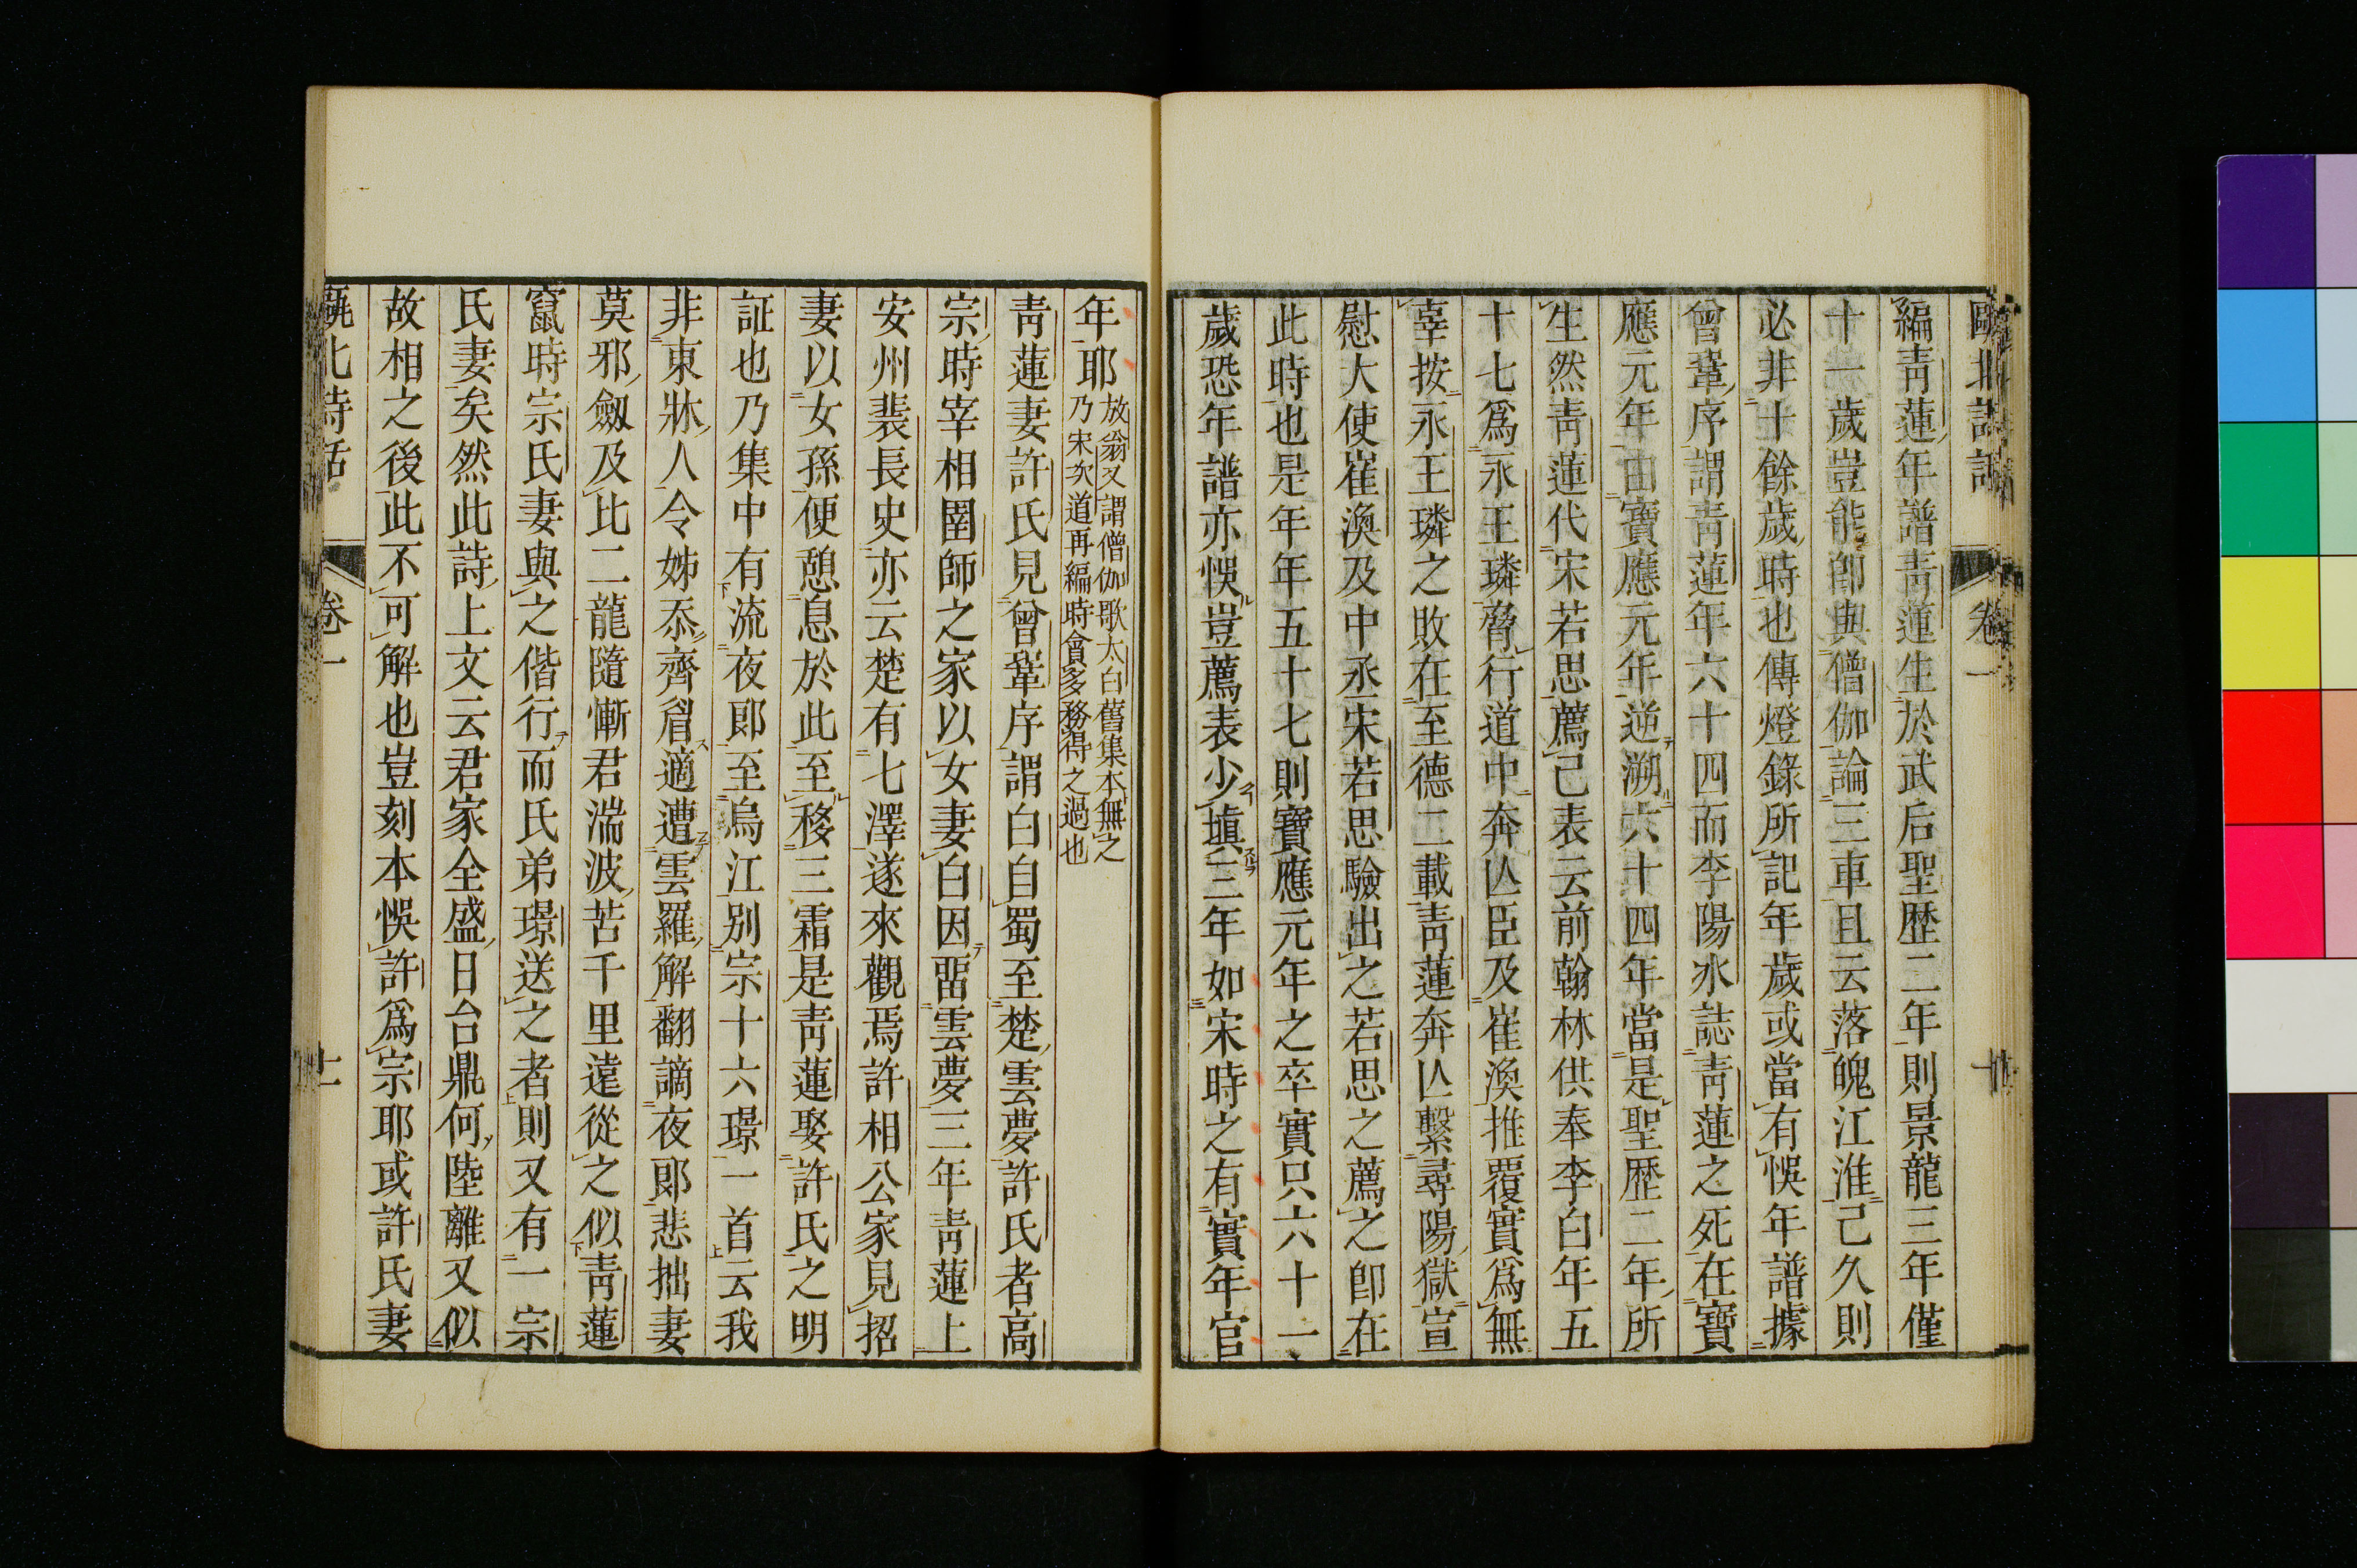 甌北詩話 卷一 十
編靑蓮年譜靑蓮生於武后聖歷二年則景龍三年僅
十一歲豈能卽與僧伽論三車且云落魄江淮己久則
必非十餘歲時也傳燈錄所記年歲或當有悞年譜據
曾鞏序謂靑蓮年六十四而李陽冰誌靑蓮之死在寶
應元年由寶應元年逆溯六十四年當是聖歷二年所
生然靑蓮代宋若思薦己表云前翰林供奉李白年五
十七爲永王璘脅行道中奔亾臣及崔渙推覆實爲無
辜按永王璘之敗在至德二載靑蓮奔亾繫尋陽獄宣
慰大使崔渙及中丞宋若思驗出之若思之薦之卽在
此時也是年年五十七則寶應元年之卒實只六十一
歲恐年譜亦悞豈薦表少塡三年如宋時之有實年官
年耶
放翁又謂僧伽歌太白舊集本無之
乃宋次道再編時會多務得之過也
靑蓮妻許氏見曾鞏序謂白自蜀至楚雲夢許氏者高
宗時宰相圉師之家以女妻白因畱雲夢三年靑蓮上
安州裴長史亦云楚有七澤遂來觀焉許相公家見招
妻以女孫便憩息於此至移三霜是靑蓮娶許氏之明
証也乃集中有流夜郞至烏江別宗十六璟一首云我
非東牀人令姊忝齊眉適遭雲羅解翻謫夜郞悲拙妻
莫邪劔及比二龍隨慚君湍波苦千里遠從之似靑蓮
竄時宗氏妻與之偕行而氏弟璟送之者則又有一宗
氏妻矣然此詩上文云君家全盛日台鼎何陸離又似
故相之後此不可解也豈刻本悞許爲宗耶或許氏妻
甌北詩話 卷一 十一